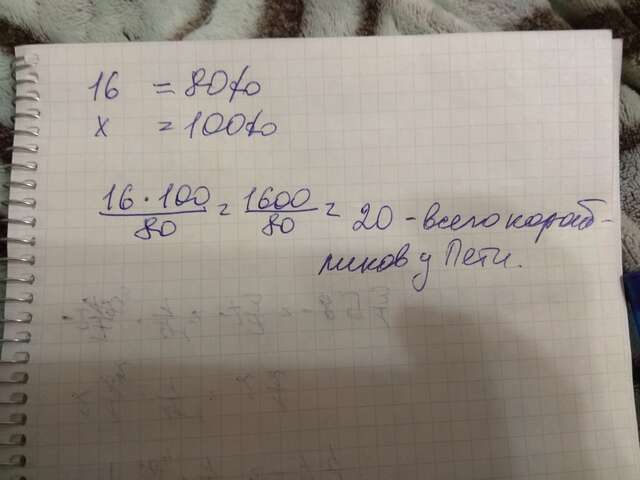 16 = 80%
x = 100%
16·100/80 = 1600/80 = 20 - всего кораб-
ликов у Пети.